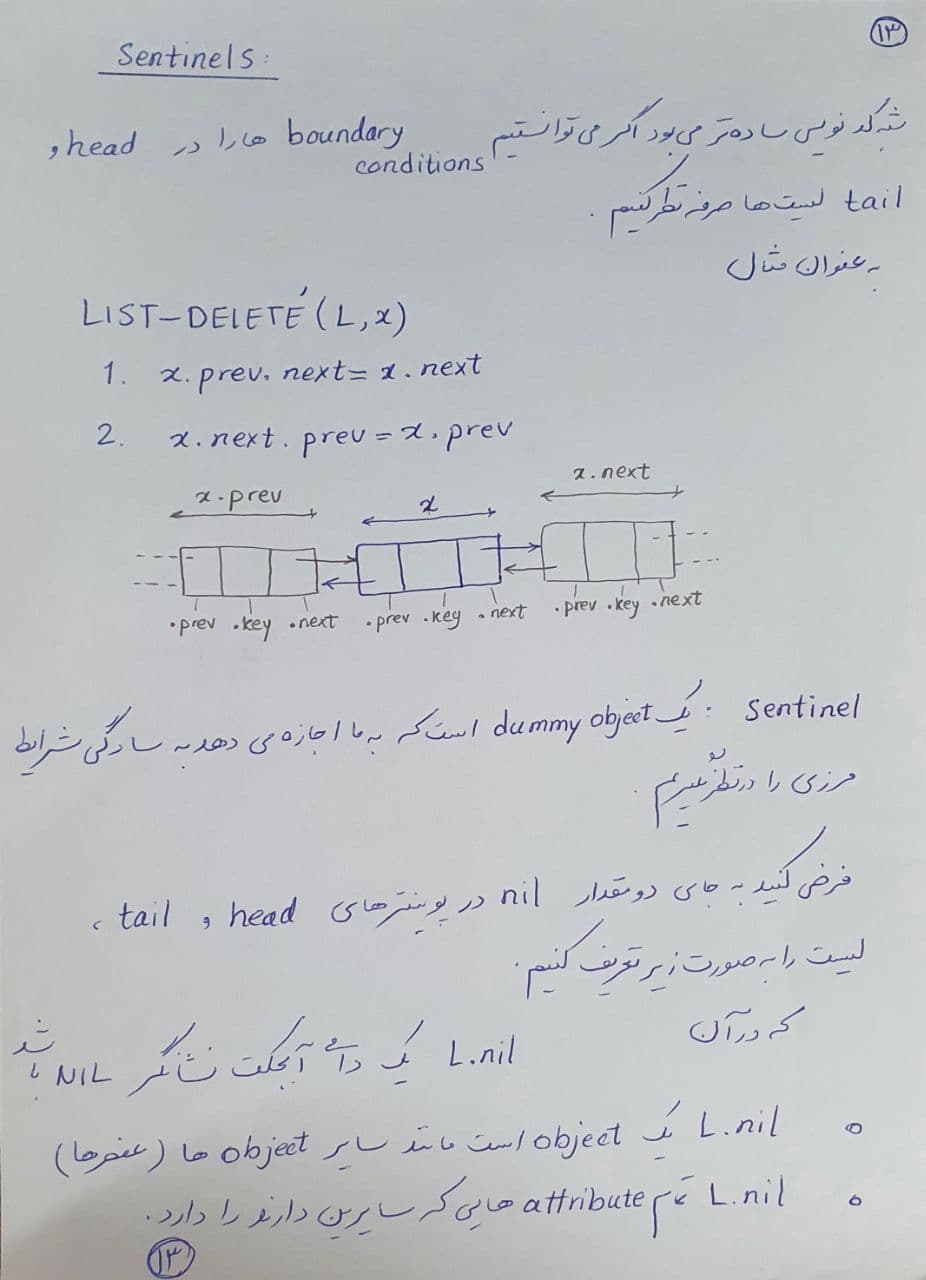 ۱۳
Sentinels:
شبه کد نویسی ساده‌تر می‌بود اگر می‌توانستیم boundary conditions ها را در head و
tail لیست‌ها صرفه نظر کنیم.
به عنوان مثال
LIST-DELETE'(L,x)
1. x.prev.next = x.next
2. x.next.prev = x.prev
x.prev x x.next
.prev .key .next .prev .key .next .prev .key .next
Sentinel : یک dummy object است که به ما اجازه می دهد به سادگی شرایط
مرزی را در نظر نگیریم.
فرض کنید به جای دو مقدار nil در پوینترهای head و tail ،
لیست را به صورت زیر تعریف کنیم.
که در آن
L.nil یک آبجکت نشانگر NIL باشد
L.nil یک object است مانند سایر object ها (عنصرها)
L.nil تمام attribute هایی که سایرین دارند را دارد.
۱۳